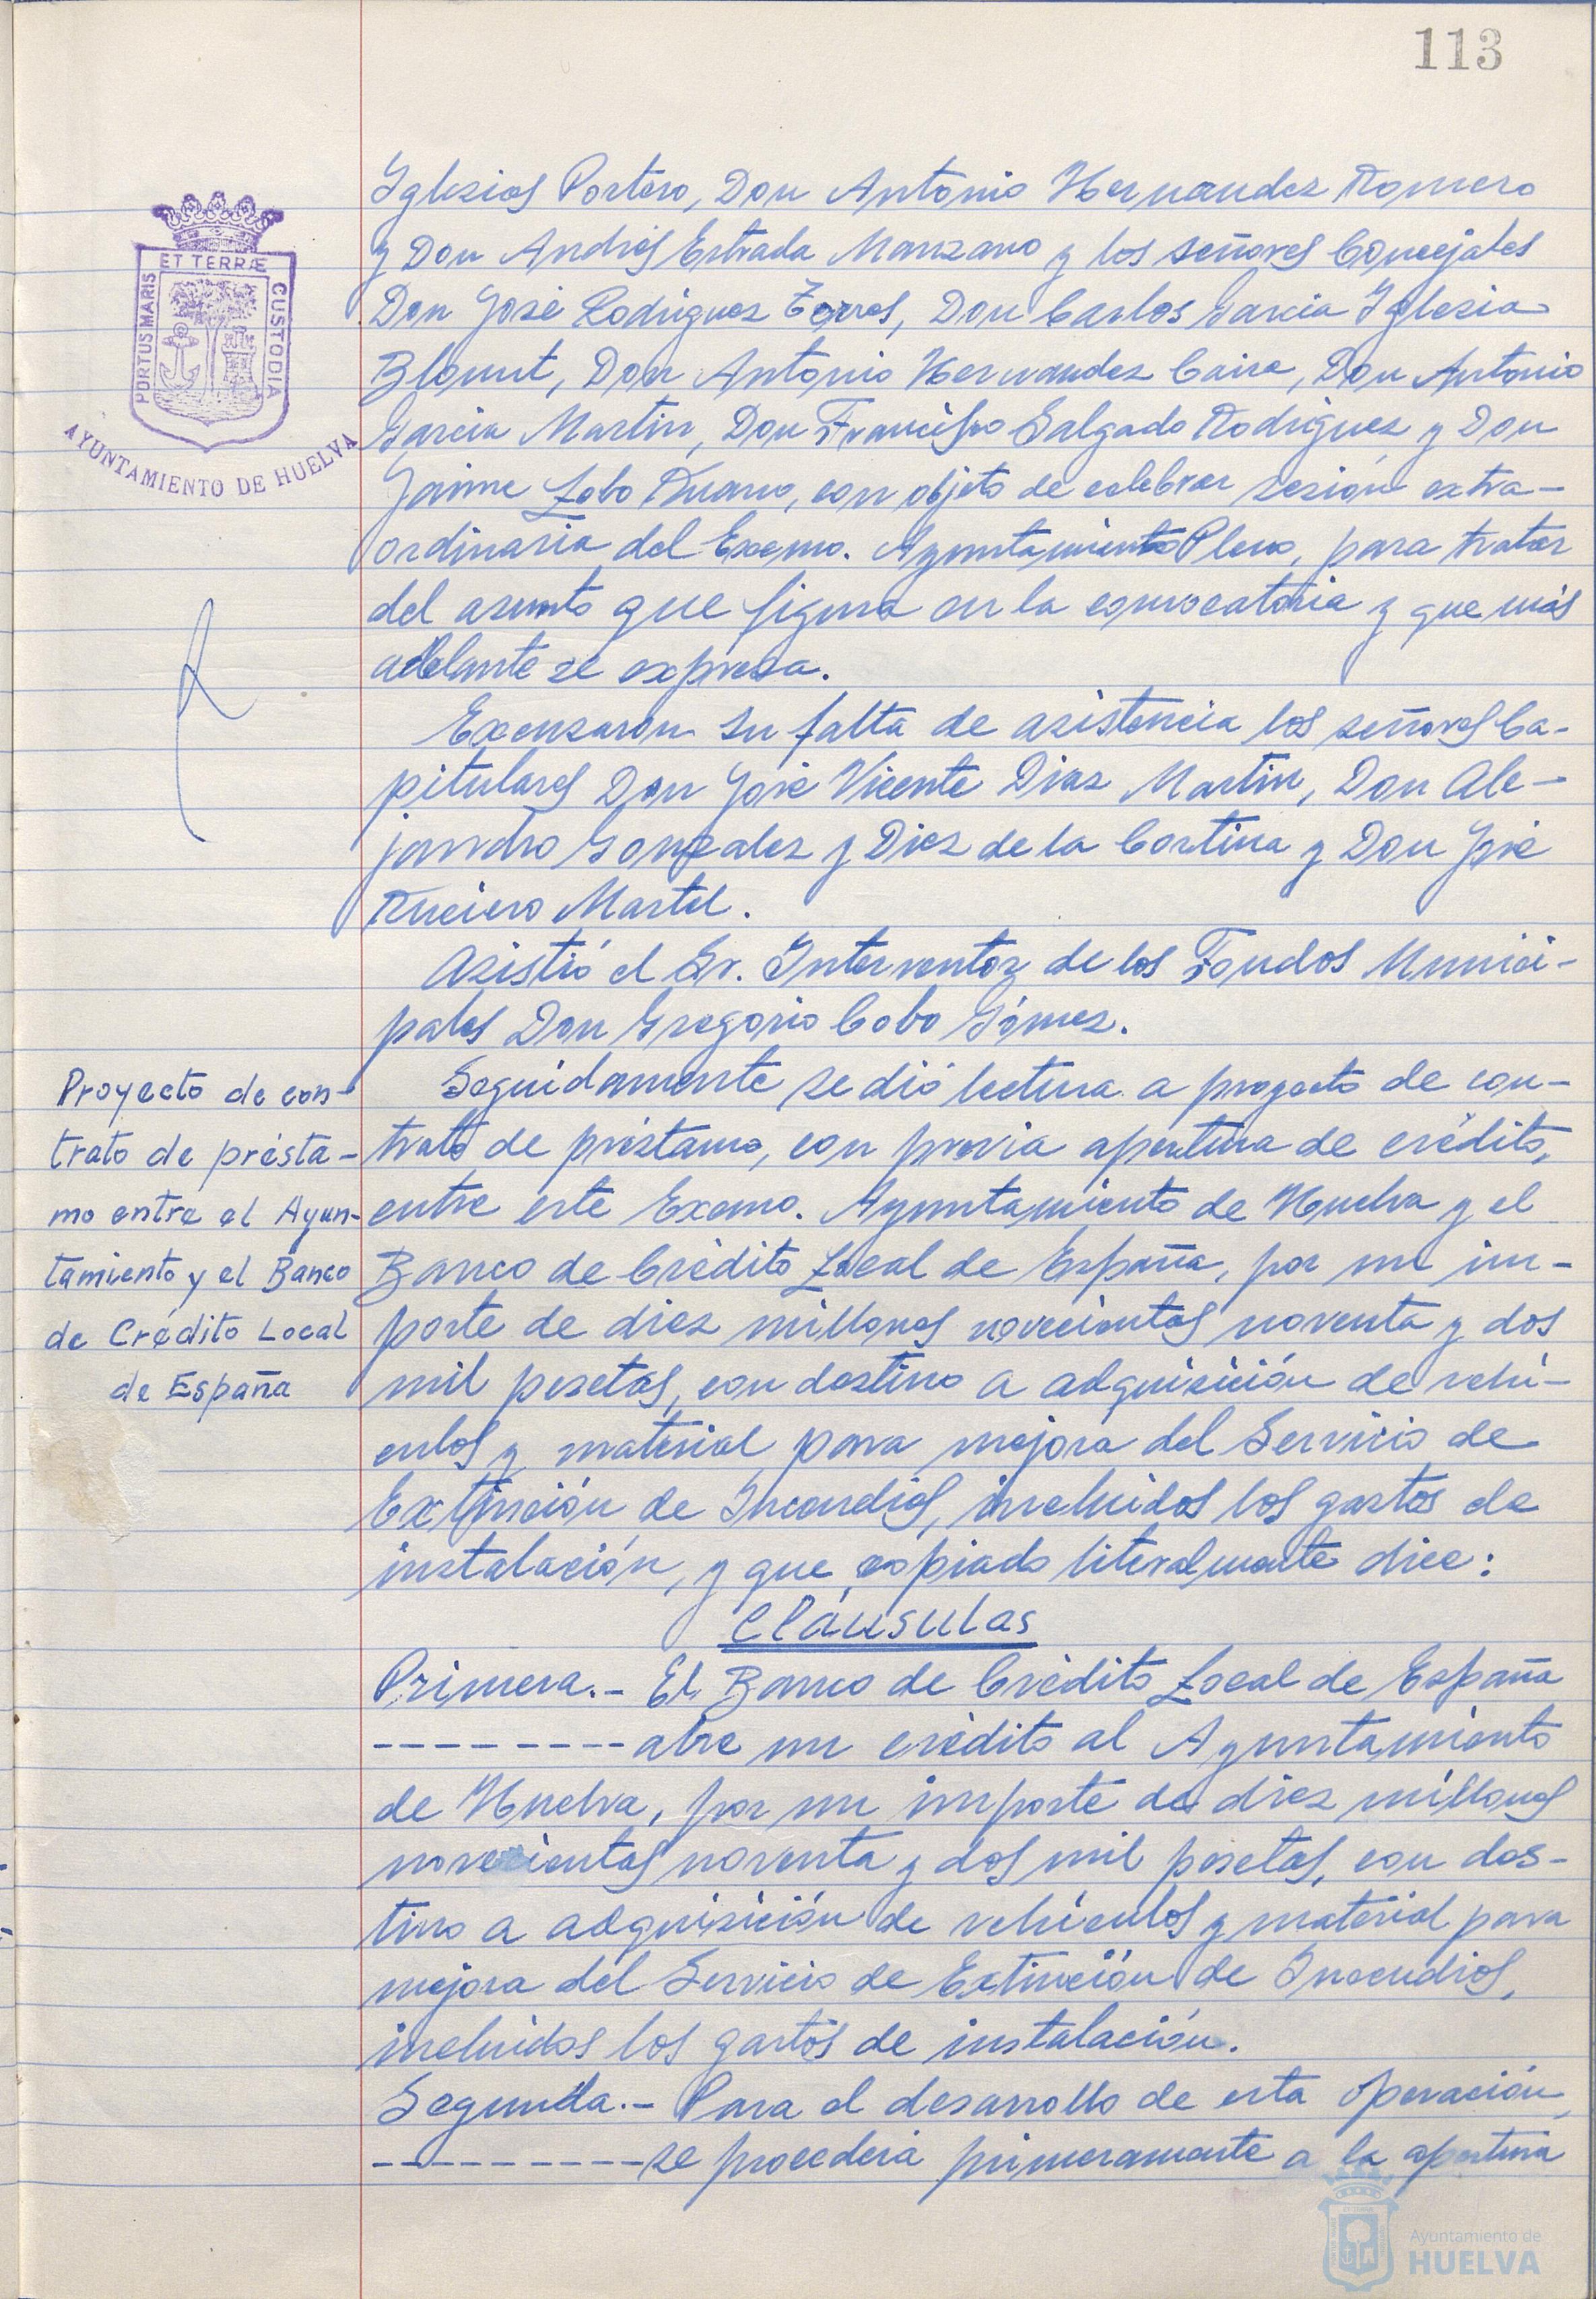 113
Iglesias Portero, Don Antonio Hernandez Romero
y Don Andrés Estrada Manzano y los señores Concejales
Don José Rodriguez Torres, Don Carlos Garcia Iglesia
Blount, Don Antonio Hernandez Caire, Don Antonio
Garcia Martin, Don Francisco Salgado Rodriguez y Don
Jaime Lobo, con objeto de celebrar sesión extra-
ordinaria del Excmo. Ayuntamiento Pleno, para tratar
del asunto que figura en la convocatoria y que más
adelante se expresa.
Excusaron su falta de asistencia los señores Ca-
pitulares Don José Vicente Diaz Martin, Don Ale-
jandro Gonzalez y Diez de la Cortina y Don José
Ruciero Martel.
Asistió el Sr. Interventor de los Fondos Munici-
pales Don Gregorio Cobo Gómez.
Proyecto de con-
trato de présta-
mo entre el Ayun-
tamiento y el Banco
de Crédito Local
de España
Seguidamente se dió lectura a proyecto de con-
trato de préstamo, con previa apertura de crédito,
entre este Excmo. Ayuntamiento de Huelva y el
Banco de Crédito Local de España, por un im-
porte de diez millones novecientas noventa y dos
mil pesetas, con destino a adquisición de vehi-
culos y material para mejora del Servicio de
Extinción de Incendios, incluidos los gastos de
instalación, y que copiado literalmente dice:
Cláusulas
Primera.- El Banco de Crédito Local de España
--------- abre un crédito al Ayuntamiento
de Huelva, por un importe de diez millones
novecientas noventa y dos mil pesetas, con des-
tino a adquisición de vehiculos y material para
mejora del Servicio de Extinción de Incendios,
incluidos los gastos de instalación.
Segunda.- Para el desarrollo de esta operación,
--------- se procederá primeramente a la apertura
PORTUS MARIS
ET TERRÆ
CUSTODIA
AYUNTAMIENTO DE HUELVA
Ayuntamiento de
HUELVA